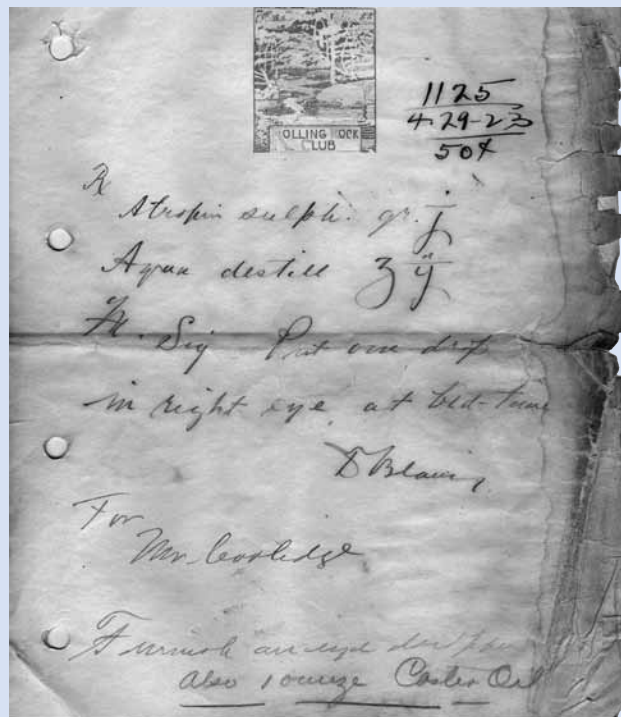 OLLING OCK
CLUB
1125
4-29-23
50¢
℞
Atropin sulph. gr. j
Aqua destill ʒ ij
M. Sig Put one drop
in right eye at bed-time
D Blair
For
Mr. Coolidge
Furnish an eye dropper
also 1 ounze Castor Oil